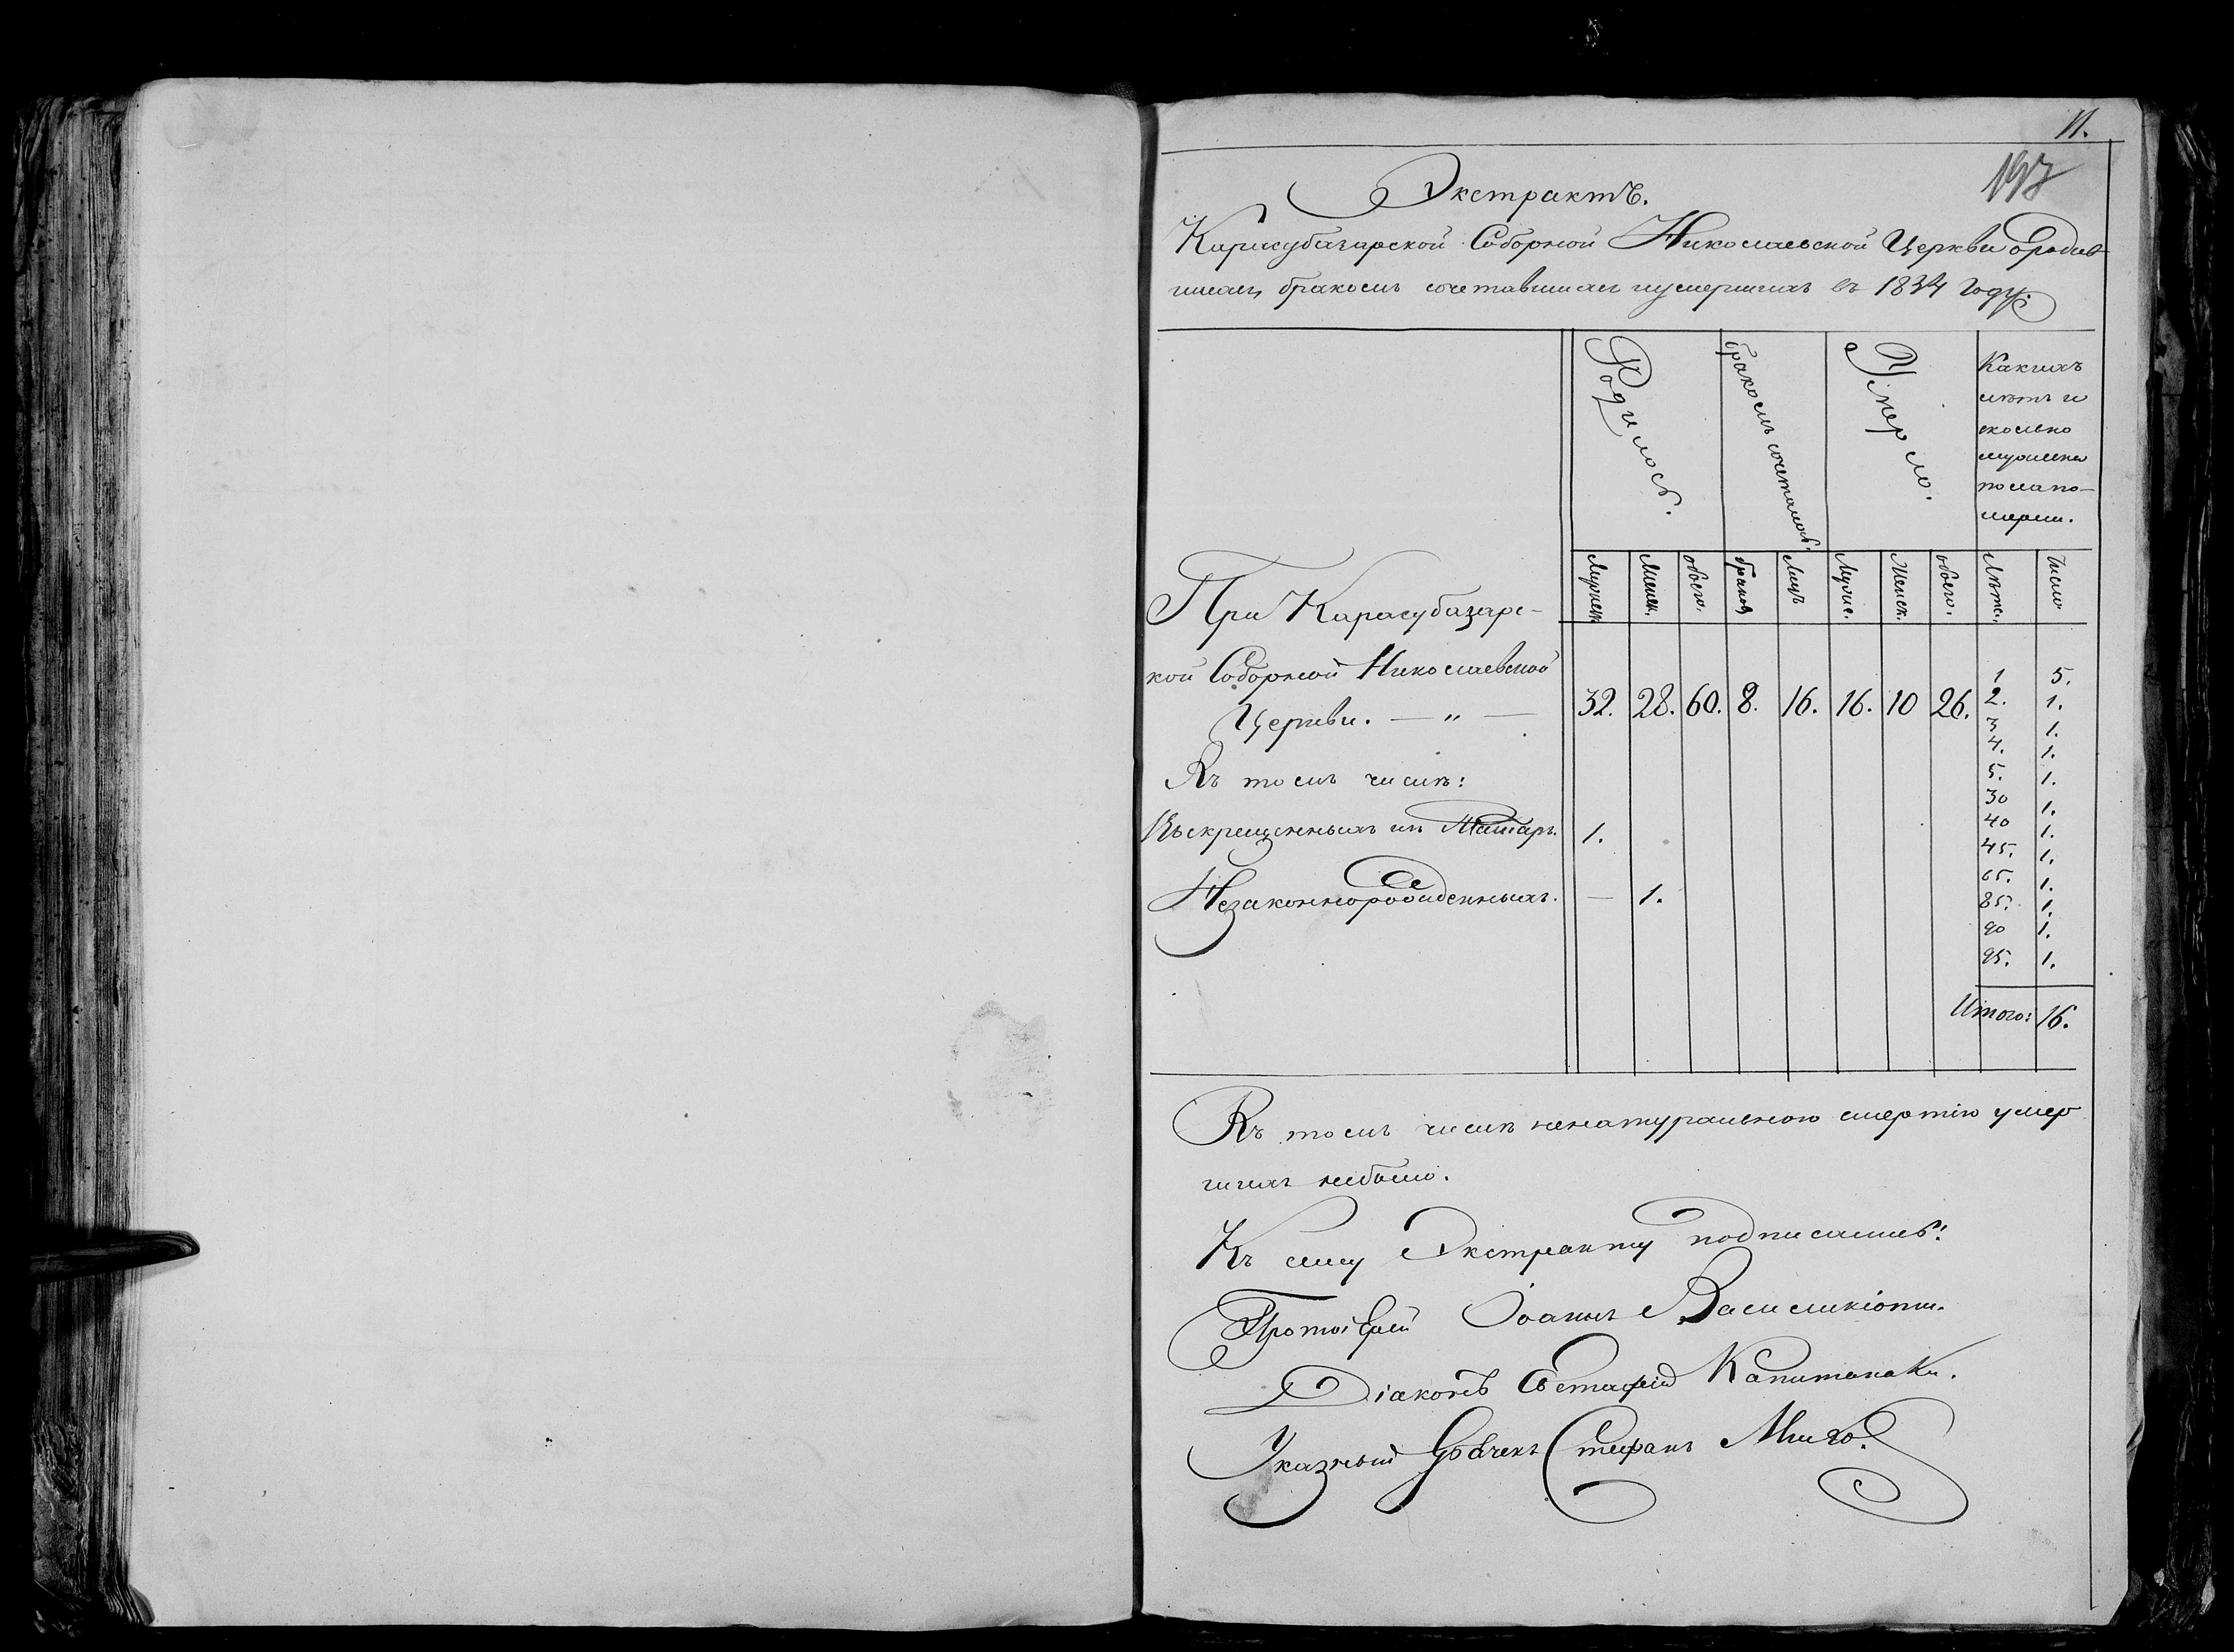 11.
197
Экстрактъ.
Карасубазарской Соборной Николаевской Церкви о родив-
шихся, бракомъ сочетавшихся и умершихъ въ 1834 году.
Родилось.
бракомъ сочеталось.
Умерло.
Какихъ
лѣтъ и
сколько
мужеска
пола по-
мерли.
Мужеск.
Женск.
обоего.
браков
Лицъ
Мужес.
Женск.
обоего.
Лѣтъ.
Число.
При Карасубазарс-
кой Соборной Николаевской
Церкви. — „ —
32. 28. 60. 8. 16. 16. 10 26.
1 5.
2. 1.
3 1.
4. 1.
5. 1.
30 1.
40 1.
45. 1.
65. 1.
85. 1.
90 1.
95. 1.
Итого: 16.
Въ томъ числѣ:
Въскрещенныхъ из Татаръ. 1.
Незаконнорожденныхъ. — 1.
Въ томъ числѣ ненатуральною смертію умер
шихъ небыло.
Къ сему Экстракту подписались:
Протоіерей Іоаннъ Василикіоти.
Діаконъ Евстафій Капитанаки.
Указный Стефанъ